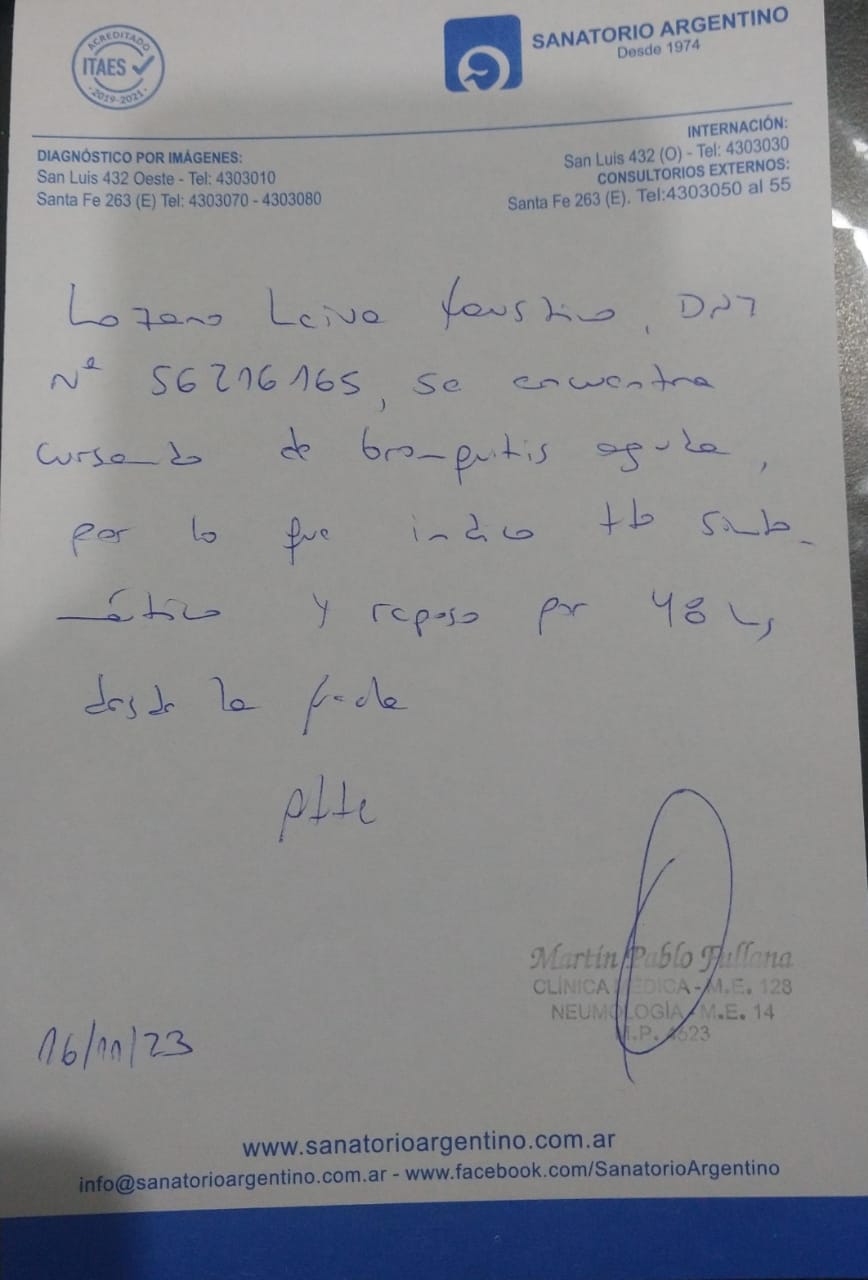 ACREDITADO
ITAES
2019-2021
SANATORIO ARGENTINO
Desde 1974
DIAGNÓSTICO POR IMÁGENES:
San Luis 432 Oeste - Tel: 4303010
Santa Fe 263 (E) Tel: 4303070 - 4303080
INTERNACIÓN:
San Luis 432 (O) - Tel: 4303030
CONSULTORIOS EXTERNOS:
Santa Fe 263 (E). Tel:4303050 al 55
Lozano Leiva Faustino, DNI
Nº 56216165, se encuentra
cursando de bronquitis aguda,
por lo que indico tto sinto-
mático y reposo por 48 hs
desde la fecha
Atte
Martín Pablo Fullana
CLÍNICA MEDICA - M.E. 128
NEUMOLOGÍA - M.E. 14
M.P. 4523
16/11/23
www.sanatorioargentino.com.ar
info@sanatorioargentino.com.ar - www.facebook.com/SanatorioArgentino